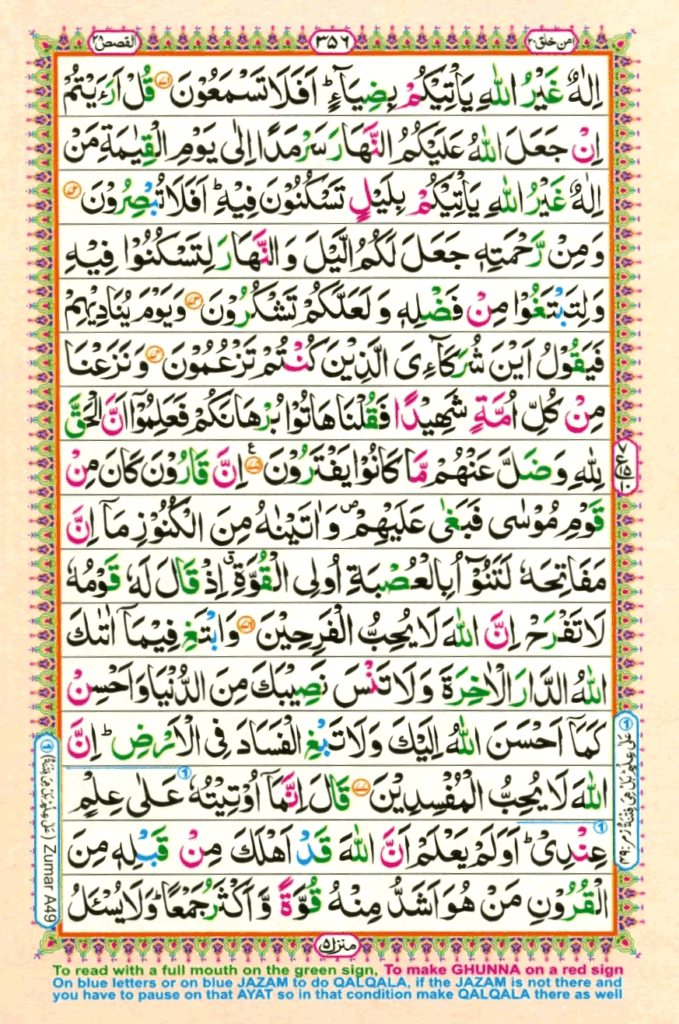 القصص ٢٨
٣٥٦
امن خلق ٢٠
اِلٰهٌ غَيْرُ اللّٰهِ يَاْتِيْكُمْ بِضِيَآءٍ ؕ اَفَلَا تَسْمَعُوْنَ ۝۷۱ قُلْ اَرَءَيْتُمْ
اِنْ جَعَلَ اللّٰهُ عَلَيْكُمُ النَّهَارَ سَرْمَدًا اِلٰى يَوْمِ الْقِيٰمَةِ مَنْ
اِلٰهٌ غَيْرُ اللّٰهِ يَاْتِيْكُمْ بِلَيْلٍ تَسْكُنُوْنَ فِيْهِ ؕ اَفَلَا تُبْصِرُوْنَ ۝۷۲
وَمِنْ رَّحْمَتِهٖ جَعَلَ لَكُمُ الَّيْلَ وَالنَّهَارَ لِتَسْكُنُوْا فِيْهِ
وَلِتَبْتَغُوْا مِنْ فَضْلِهٖ وَلَعَلَّكُمْ تَشْكُرُوْنَ ۝۷۳ وَيَوْمَ يُنَادِيْهِمْ
فَيَقُوْلُ اَيْنَ شُرَكَآءِيَ الَّذِيْنَ كُنْتُمْ تَزْعُمُوْنَ ۝۷۴ وَنَزَعْنَا
مِنْ كُلِّ اُمَّةٍ شَهِيْدًا فَقُلْنَا هَاتُوْا بُرْهَانَكُمْ فَعَلِمُوْۤا اَنَّ الْحَقَّ
لِلّٰهِ وَضَلَّ عَنْهُمْ مَّا كَانُوْا يَفْتَرُوْنَ ۝۷۵ ع اِنَّ قَارُوْنَ كَانَ مِنْ
قَوْمِ مُوْسٰى فَبَغٰى عَلَيْهِمْ ۪ وَاٰتَيْنٰهُ مِنَ الْكُنُوْزِ مَاۤ اِنَّ
مَفَاتِحَهٗ لَتَنُوْٓاُ بِالْعُصْبَةِ اُولِى الْقُوَّةِ ۗ اِذْ قَالَ لَهٗ قَوْمُهٗ
لَا تَفْرَحْ اِنَّ اللّٰهَ لَا يُحِبُّ الْفَرِحِيْنَ ۝۷۶ وَابْتَغِ فِيْمَاۤ اٰتٰىكَ
اللّٰهُ الدَّارَ الْاٰخِرَةَ وَلَا تَنْسَ نَصِيْبَكَ مِنَ الدُّنْيَا وَاَحْسِنْ
كَمَاۤ اَحْسَنَ اللّٰهُ اِلَيْكَ وَلَا تَبْغِ الْفَسَادَ فِى الْاَرْضِ ؕ اِنَّ
اللّٰهَ لَا يُحِبُّ الْمُفْسِدِيْنَ ۝۷۷ قَالَ اِنَّمَاۤ اُوْتِيْتُهٗ عَلٰى عِلْمٍ
عِنْدِيْ ؕ اَوَلَمْ يَعْلَمْ اَنَّ اللّٰهَ قَدْ اَهْلَكَ مِنْ قَبْلِهٖ مِنَ
الْقُرُوْنِ مَنْ هُوَ اَشَدُّ مِنْهُ قُوَّةً وَّاَكْثَرُ جَمْعًا ؕ وَلَا يُسْـَٔلُ
Zumar A49
منزل ۵
To read with a full mouth on the green sign, To make GHUNNA on a red sign
On blue letters or on blue JAZAM to do QALQALA, if the JAZAM is not there and
you have to pause on that AYAT so in that condition make QALQALA there as well